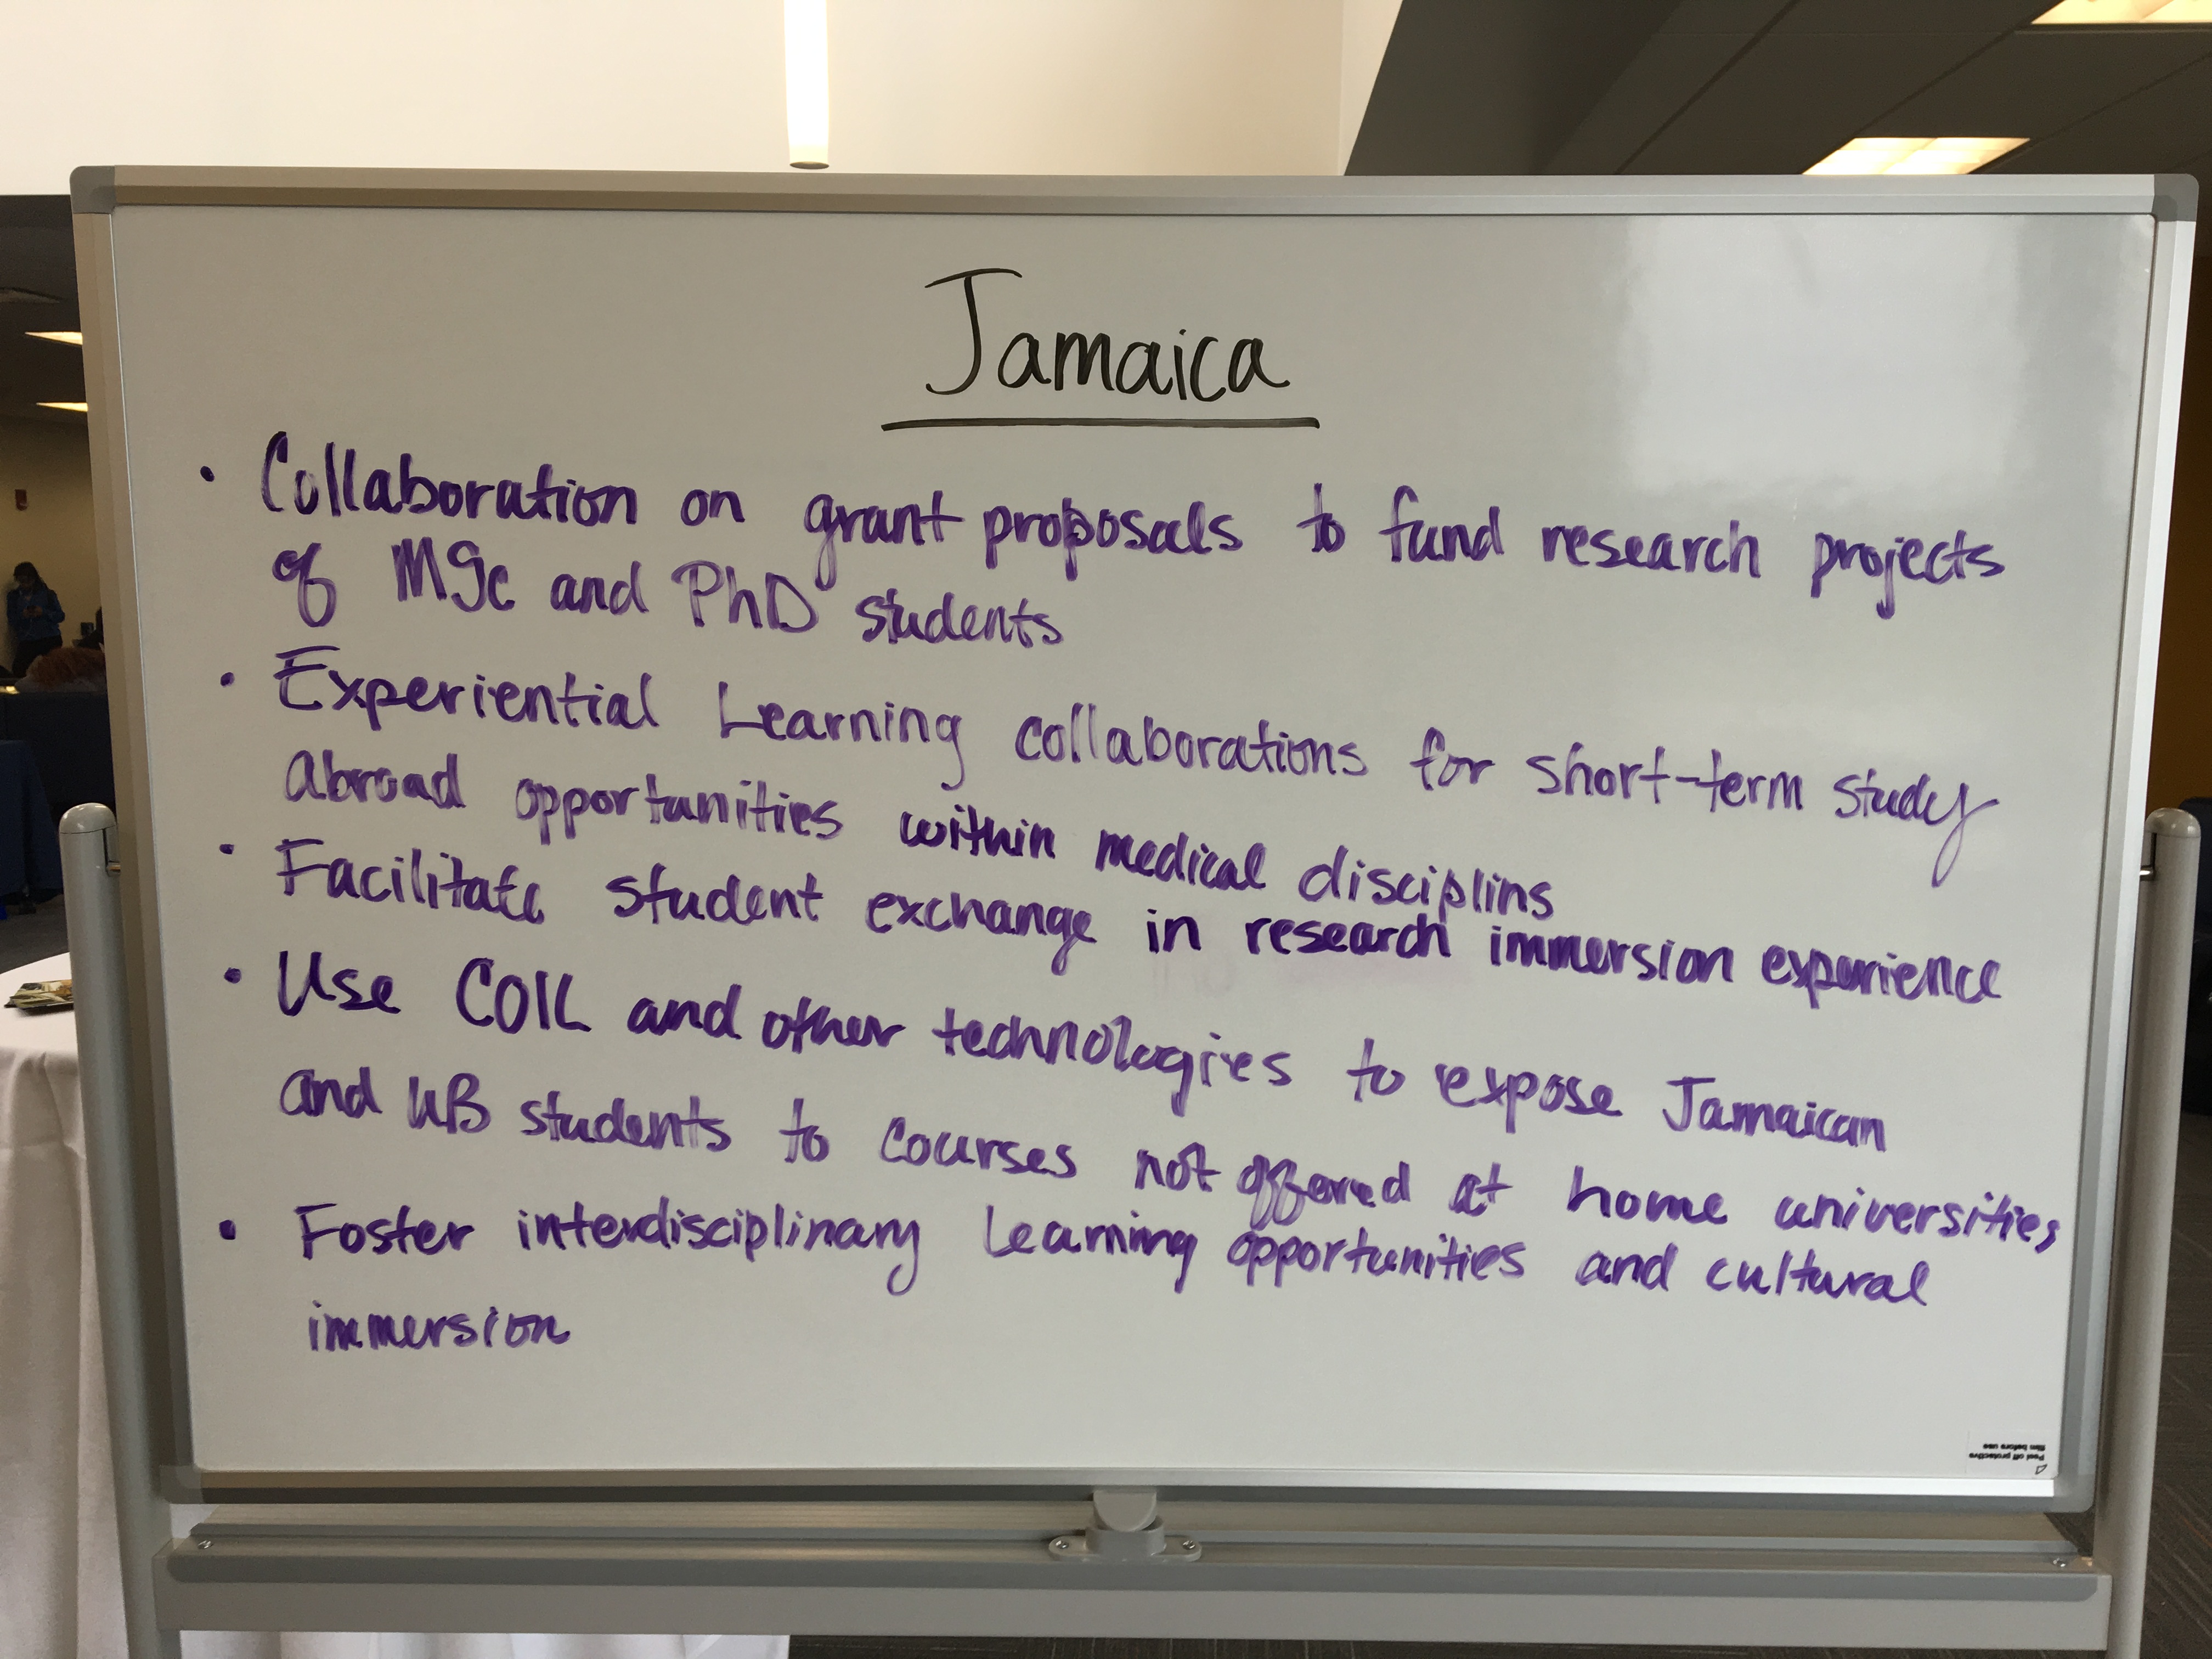 Jamaica
• Collaboration on grant proposals to fund research projects
of MSc and PhD students
• Experiential Learning collaborations for short-term study
abroad opportunities within medical disciplins
• Facilitate student exchange in research immersion experience
• Use COIL and other technologies to expose Jamaican
and UB students to courses not offered at home universities
• Foster interdisciplinary learning opportunities and cultural
immersion
Peel off protective
film before use